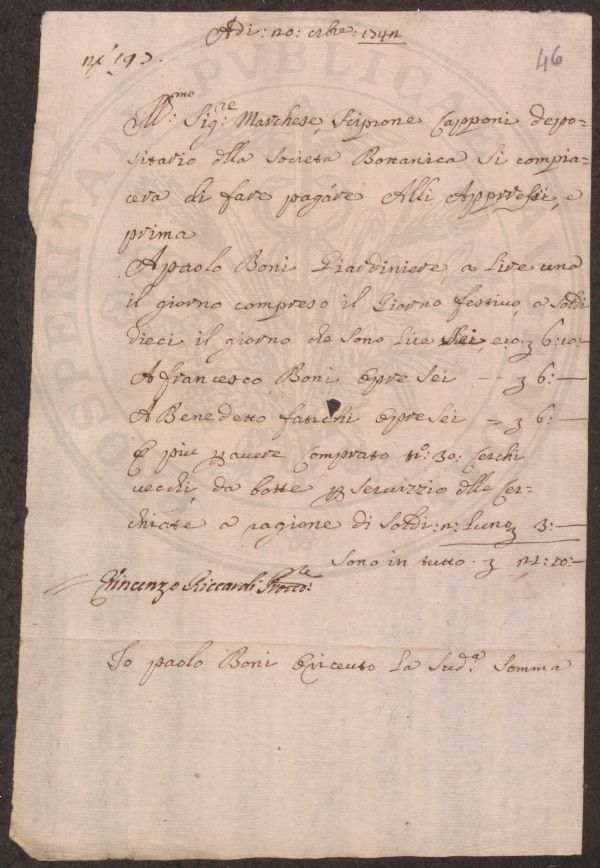 Adi: 20: 1742
46
n.° 197.
Ill.mo Sig.re Marchese Scipione Capponi depo=
sitario dlla Societa Bottanica Si compia=
cera di fare pagare Alli Appresse, e
prima
A paolo Boni Giardiniere, a Lire una
il giorno compreso il Giorno festivo, a Soldi
dieci il giorno che sono Lire Sei, e 10 £ 6: 10: —
A francesco Boni Opre Sei — £ 6: —
A Benedetto fatichi Opre Sei = £ 6: —
E piu p avere Comprato N.° 30: Cerchi
vecchi, da botte p Servizzio dlle Cer=
chiate a ragione di Soldi: 2: l'uno £ 3: —
Sono in tutto. £ 21: 10: —
Vincenzo Riccardi
Io paolo Boni O riceuto La Sud.a Somma
OSPERITATI PVBLICA